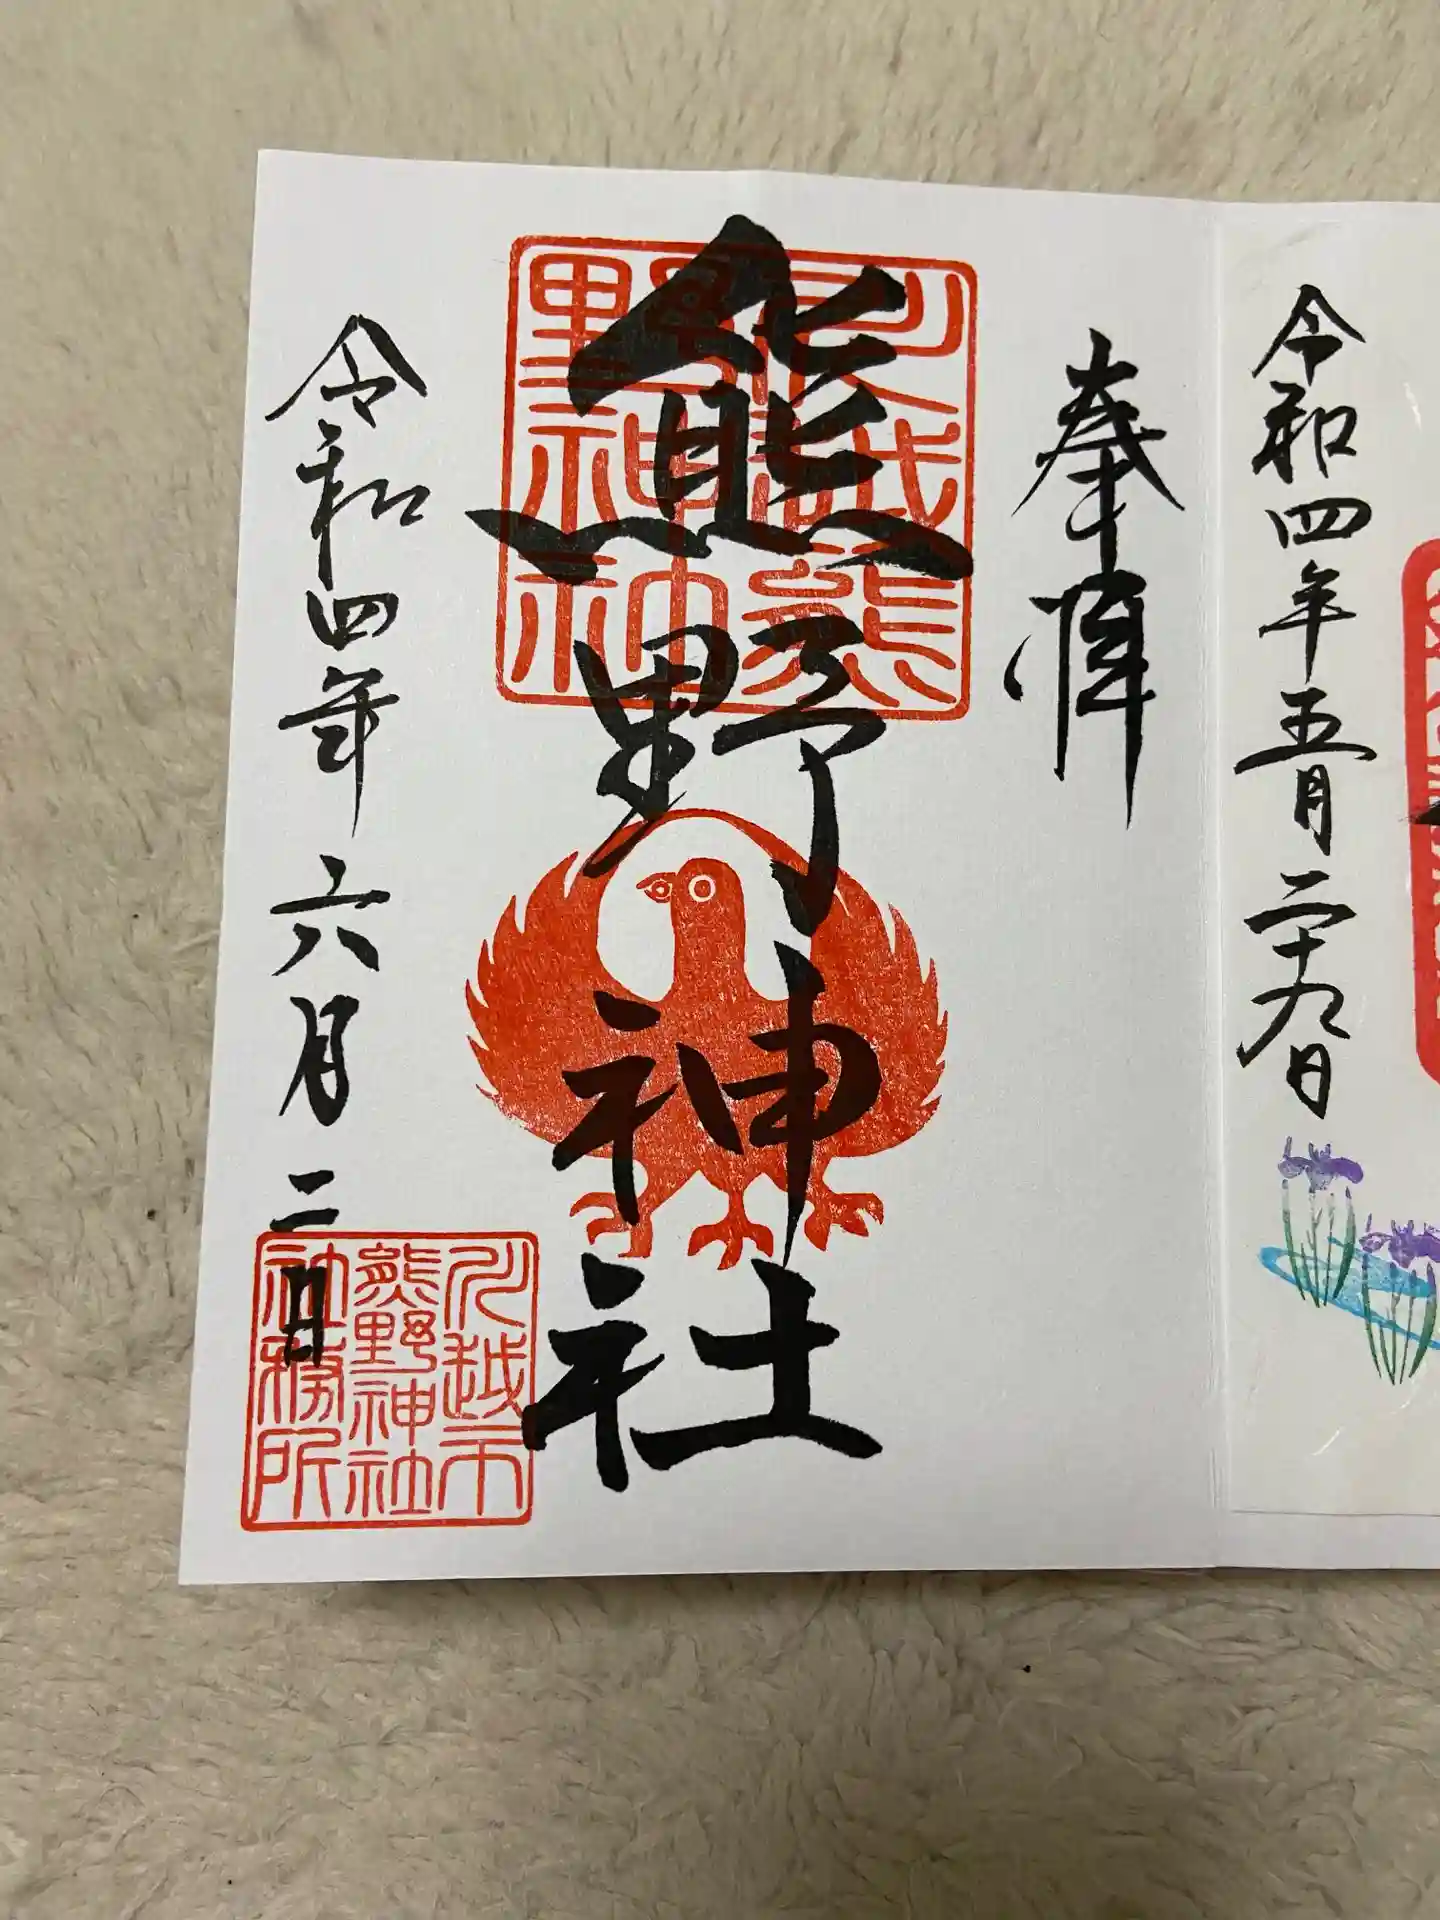 令和四年五月二十九日
奉拝
熊野神社
川越熊
野神社
令和四年六月二日
川越市
熊野神社
社務所